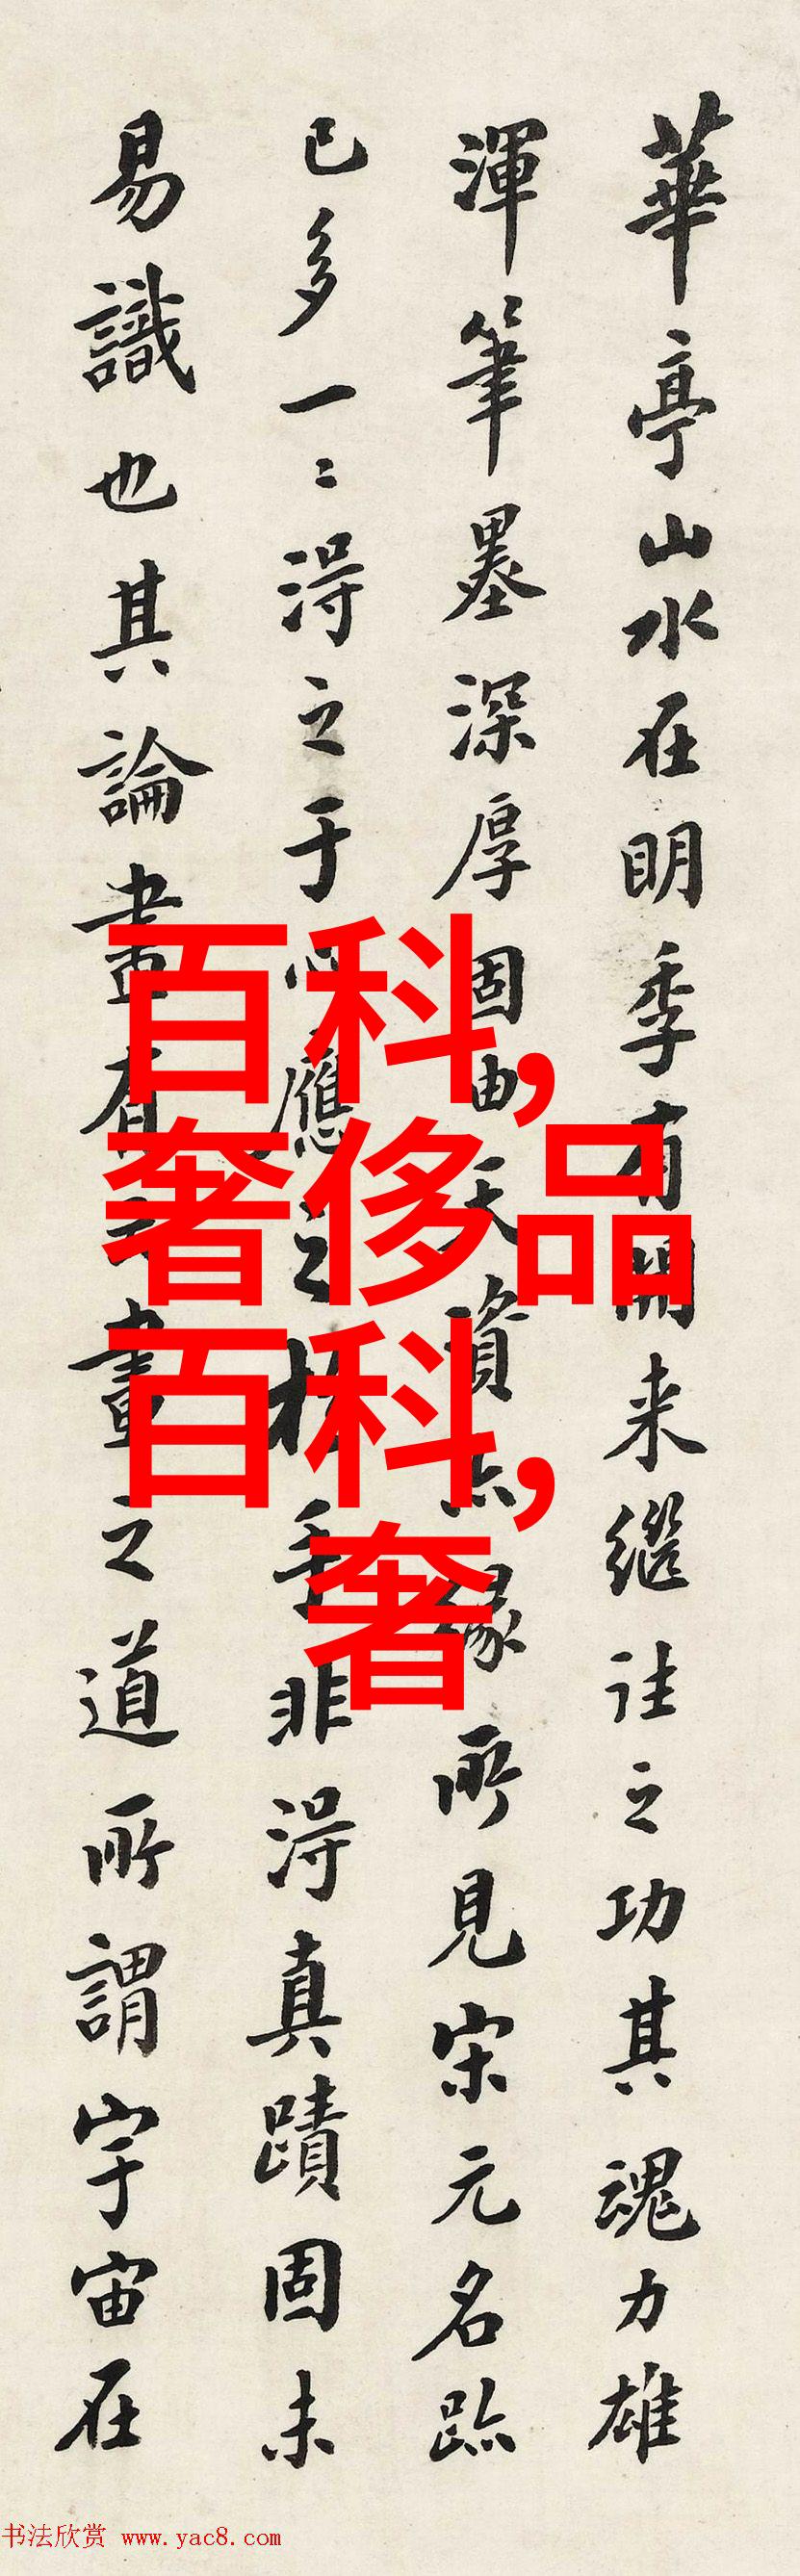 華亭山水在明季有開来繼往之功其魂力雄
渾筆墨深厚固由天資亦緣所見宋元名跡
已多一二淂之于心應之於手非淂真蹟固未
易識也其論畫有云畫之道所謂宇宙在
百科,
奢侈品
百科,
奢
书法欣赏 www.yac8.com